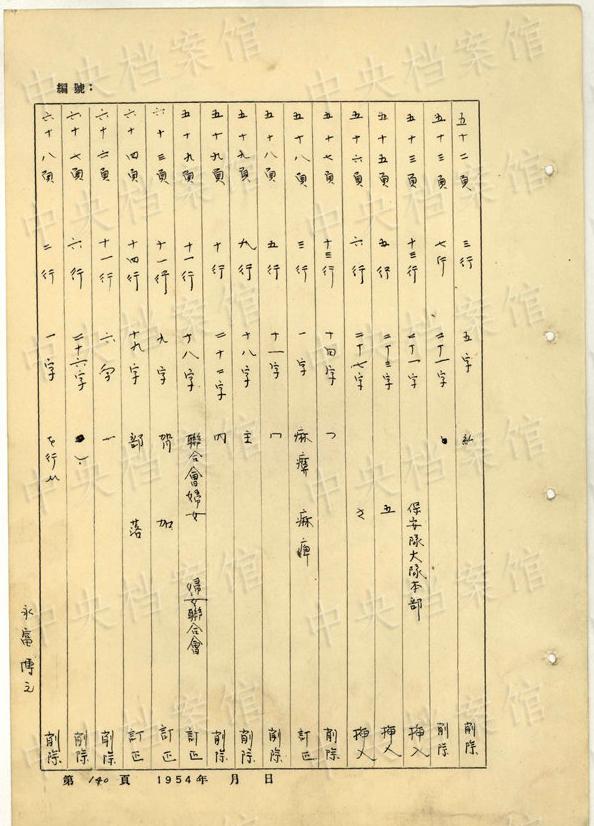 編號：
五十二頁 三行 五字 削除
五十三頁 七行 二十一字 削除
五十三頁 十三行 二十一字 保安隊大隊本部 挿入
五十五頁 五行 二十三字 五 挿入
五十六頁 六行 二十七字 さ 挿入
五十七頁 十三行 十四字 つ 削除
五十八頁 三行 一字 麻痺 訂正
五十八頁 五行 十一字 削除
五十九頁 九行 十八字 主 削除
五十九頁 十行 二十二字 四 削除
五十九頁 十一行 十八字 聯合會婦女 婦女聯合會 訂正
六十三頁 十一行 九字 加 訂正
六十四頁 十四行 十九字 部 落 訂正
六十六頁 十一行 六字 一 削除
六十七頁 六行 二十六字 削除
六十八頁 二行 一字 削除
永富博之
第 140 頁 1954年 月 日
中央档案馆